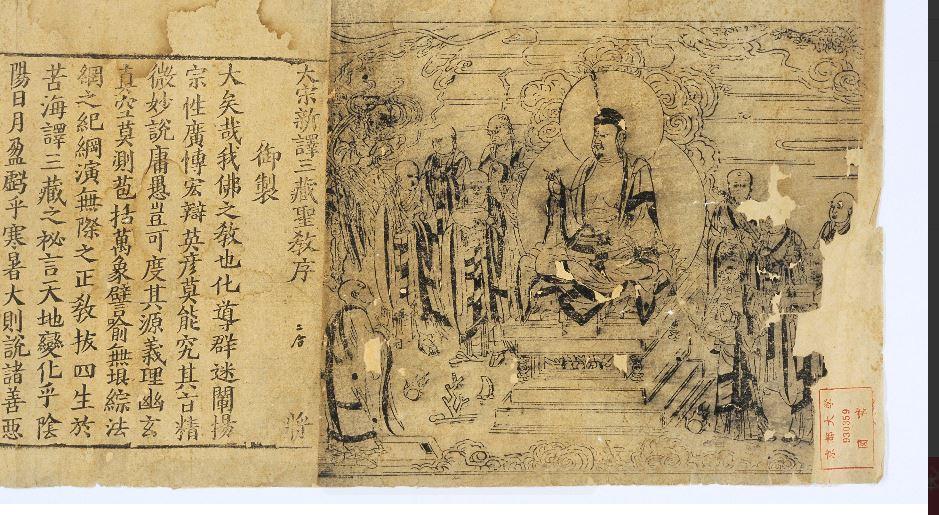 太宗新譯三藏聖教序 將
御製
大矣哉我佛之教也化導群迷闡揚
宗性廣博宏辯英彥莫能究其旨精
微妙說庸愚豈可度其源義理幽玄
真空莫測苞括萬象譬喻無垠綜法
網之紀綱演無際之正教拔四生於
苦海譯三藏之祕言天地變化乎陰
陽日月盈虧乎寒暑大則說諸善惡